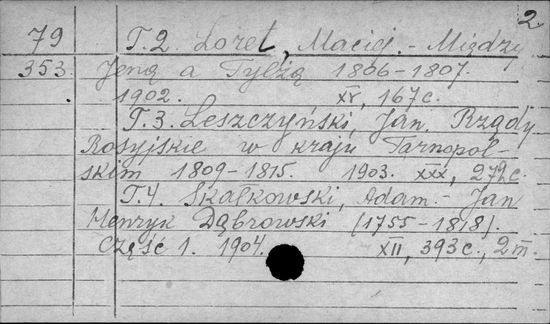 2.
79 Т.2. Loret, Maciej. - Między
353. Jeną a Tylżą 1806-1807.
1902. XV, 167 с.
Т.3. Leszczyński, Jan. Rządy
Rosyjskie w kraju Tarnopol-
skim 1809-1815. 1903. XXX, 272 с.
Т.4. Skałkowski, Adam. - Jan
Henryk Dąbrowski (1755-1818).
Część 1. 1904. XII, 393 с., 2 m.